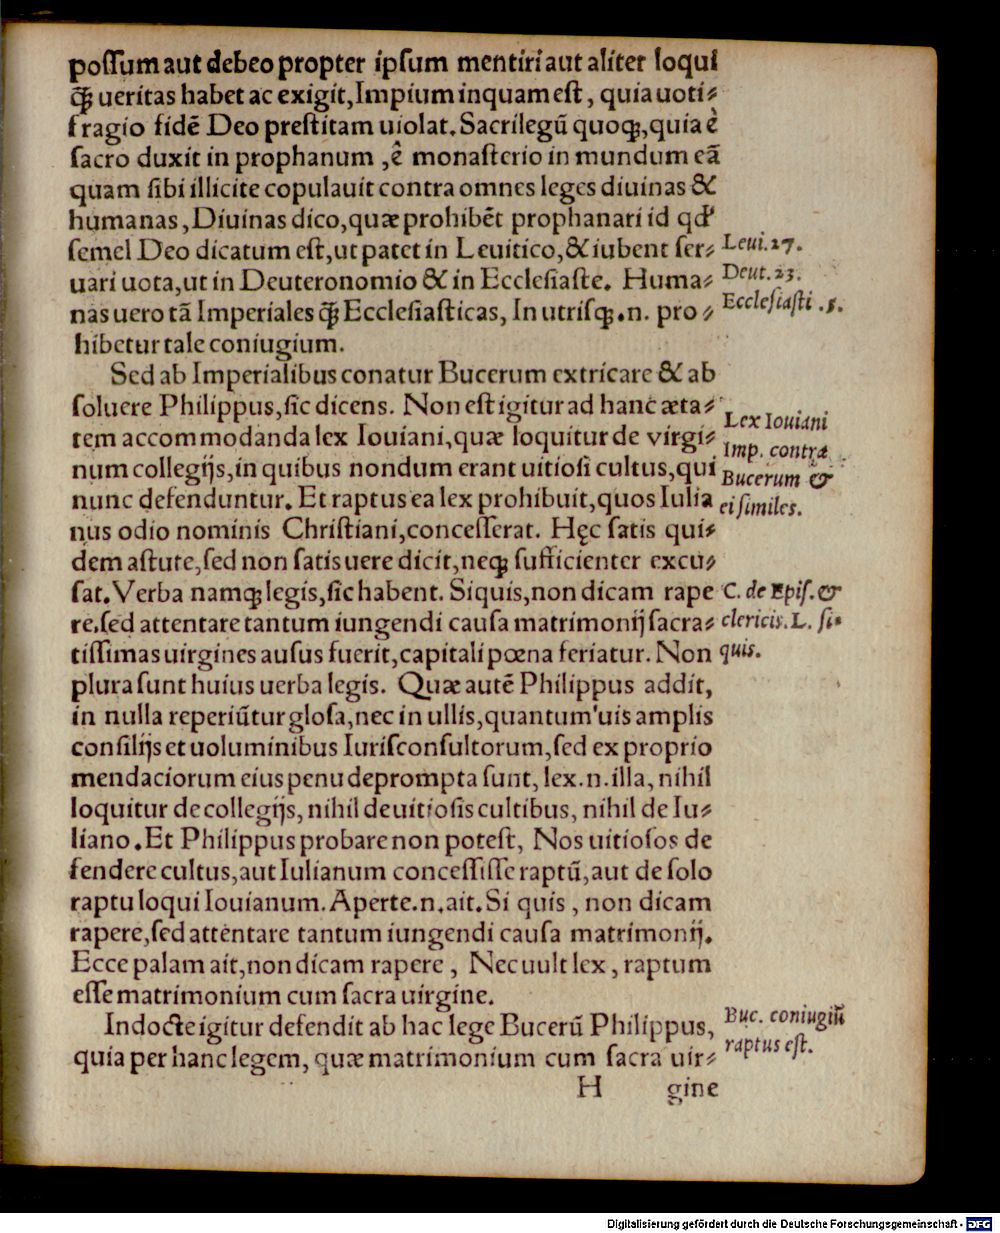 possum aut debeo propter ipsum mentiri aut aliter loqui
q̃ꝫ ueritas habet ac exigit, Impium inquam est, quia uoti⸗
fragio fidē Deo prestitam uiolat. Sacrilegũ quoqꝫ, quia è
sacro duxit in prophanum, ê monasterio in mundum eã
quam sibi illicite copulauit contra omnes leges diuinas &
humanas, Diuinas dico, quæ prohibēt prophanari id qd'
semel Deo dicatum est, ut patet in Leuitico, & iubent ser⸗
Leui. 27.
uari uota, ut in Deuteronomio & in Ecclesiaste. Huma⸗
Deut. 23.
nas uero tã Imperiales q̃ꝫ Ecclesiasticas, In utrisqꝫ .n. pro⸗
Ecclesiasti. 5.
hibetur tale coniugium.
Sed ab Imperialibus conatur Bucerum extricare & ab
soluere Philippus, sic dicens. Non est igitur ad hanc æta⸗
Lex Iouiani
tem accommodanda lex Iouiani, quæ loquitur de virgi⸗
Imp. contra
num collegijs, in quibus nondum erant uitiosi cultus, qui
Bucerum &
nunc defenduntur. Et raptus ea lex prohibuit, quos Iulia
ei similes.
nus odio nominis Christiani, concesserat. Hęc satis qui⸗
dem astute, sed non satis uere dicit, neqꝫ sufficienter excu⸗
sat. Verba namqꝫ legis, sic habent. Siquis, non dicam rape
C. de Epis. &
re, sed attentare tantum iungendi causa matrimonij sacra⸗
clericis. L. si⸗
tissimas uirgines ausus fuerit, capitali pœna feriatur. Non
quis.
plura sunt huius uerba legis. Quæ autē Philippus addit,
in nulla reperiũtur glosa, nec in ullis, quantum'uis amplis
consilijs et uoluminibus Iurisconsultorum, sed ex proprio
mendaciorum eius penu deprompta sunt, lex .n. illa, nihil
loquitur de collegijs, nihil de uitiosis cultibus, nihil de Iu⸗
liano. Et Philippus probare non potest, Nos uitiosos de
fendere cultus, aut Iulianum concessisse raptũ, aut de solo
raptu loqui Iouianum. Aperte .n. ait. Si quis, non dicam
rapere, sed attentare tantum iungendi causa matrimonij.
Ecce palam ait, non dicam rapere, Nec uult lex, raptum
esse matrimonium cum sacra uirgine.
Indocte igitur defendit ab hac lege Bucerũ Philippus,
Buc. coniugiũ
quia per hanc legem, quæ matrimonium cum sacra uir⸗
raptus est.
H gine
Digitalisierung gefördert durch die Deutsche Forschungsgemeinschaft - DFG